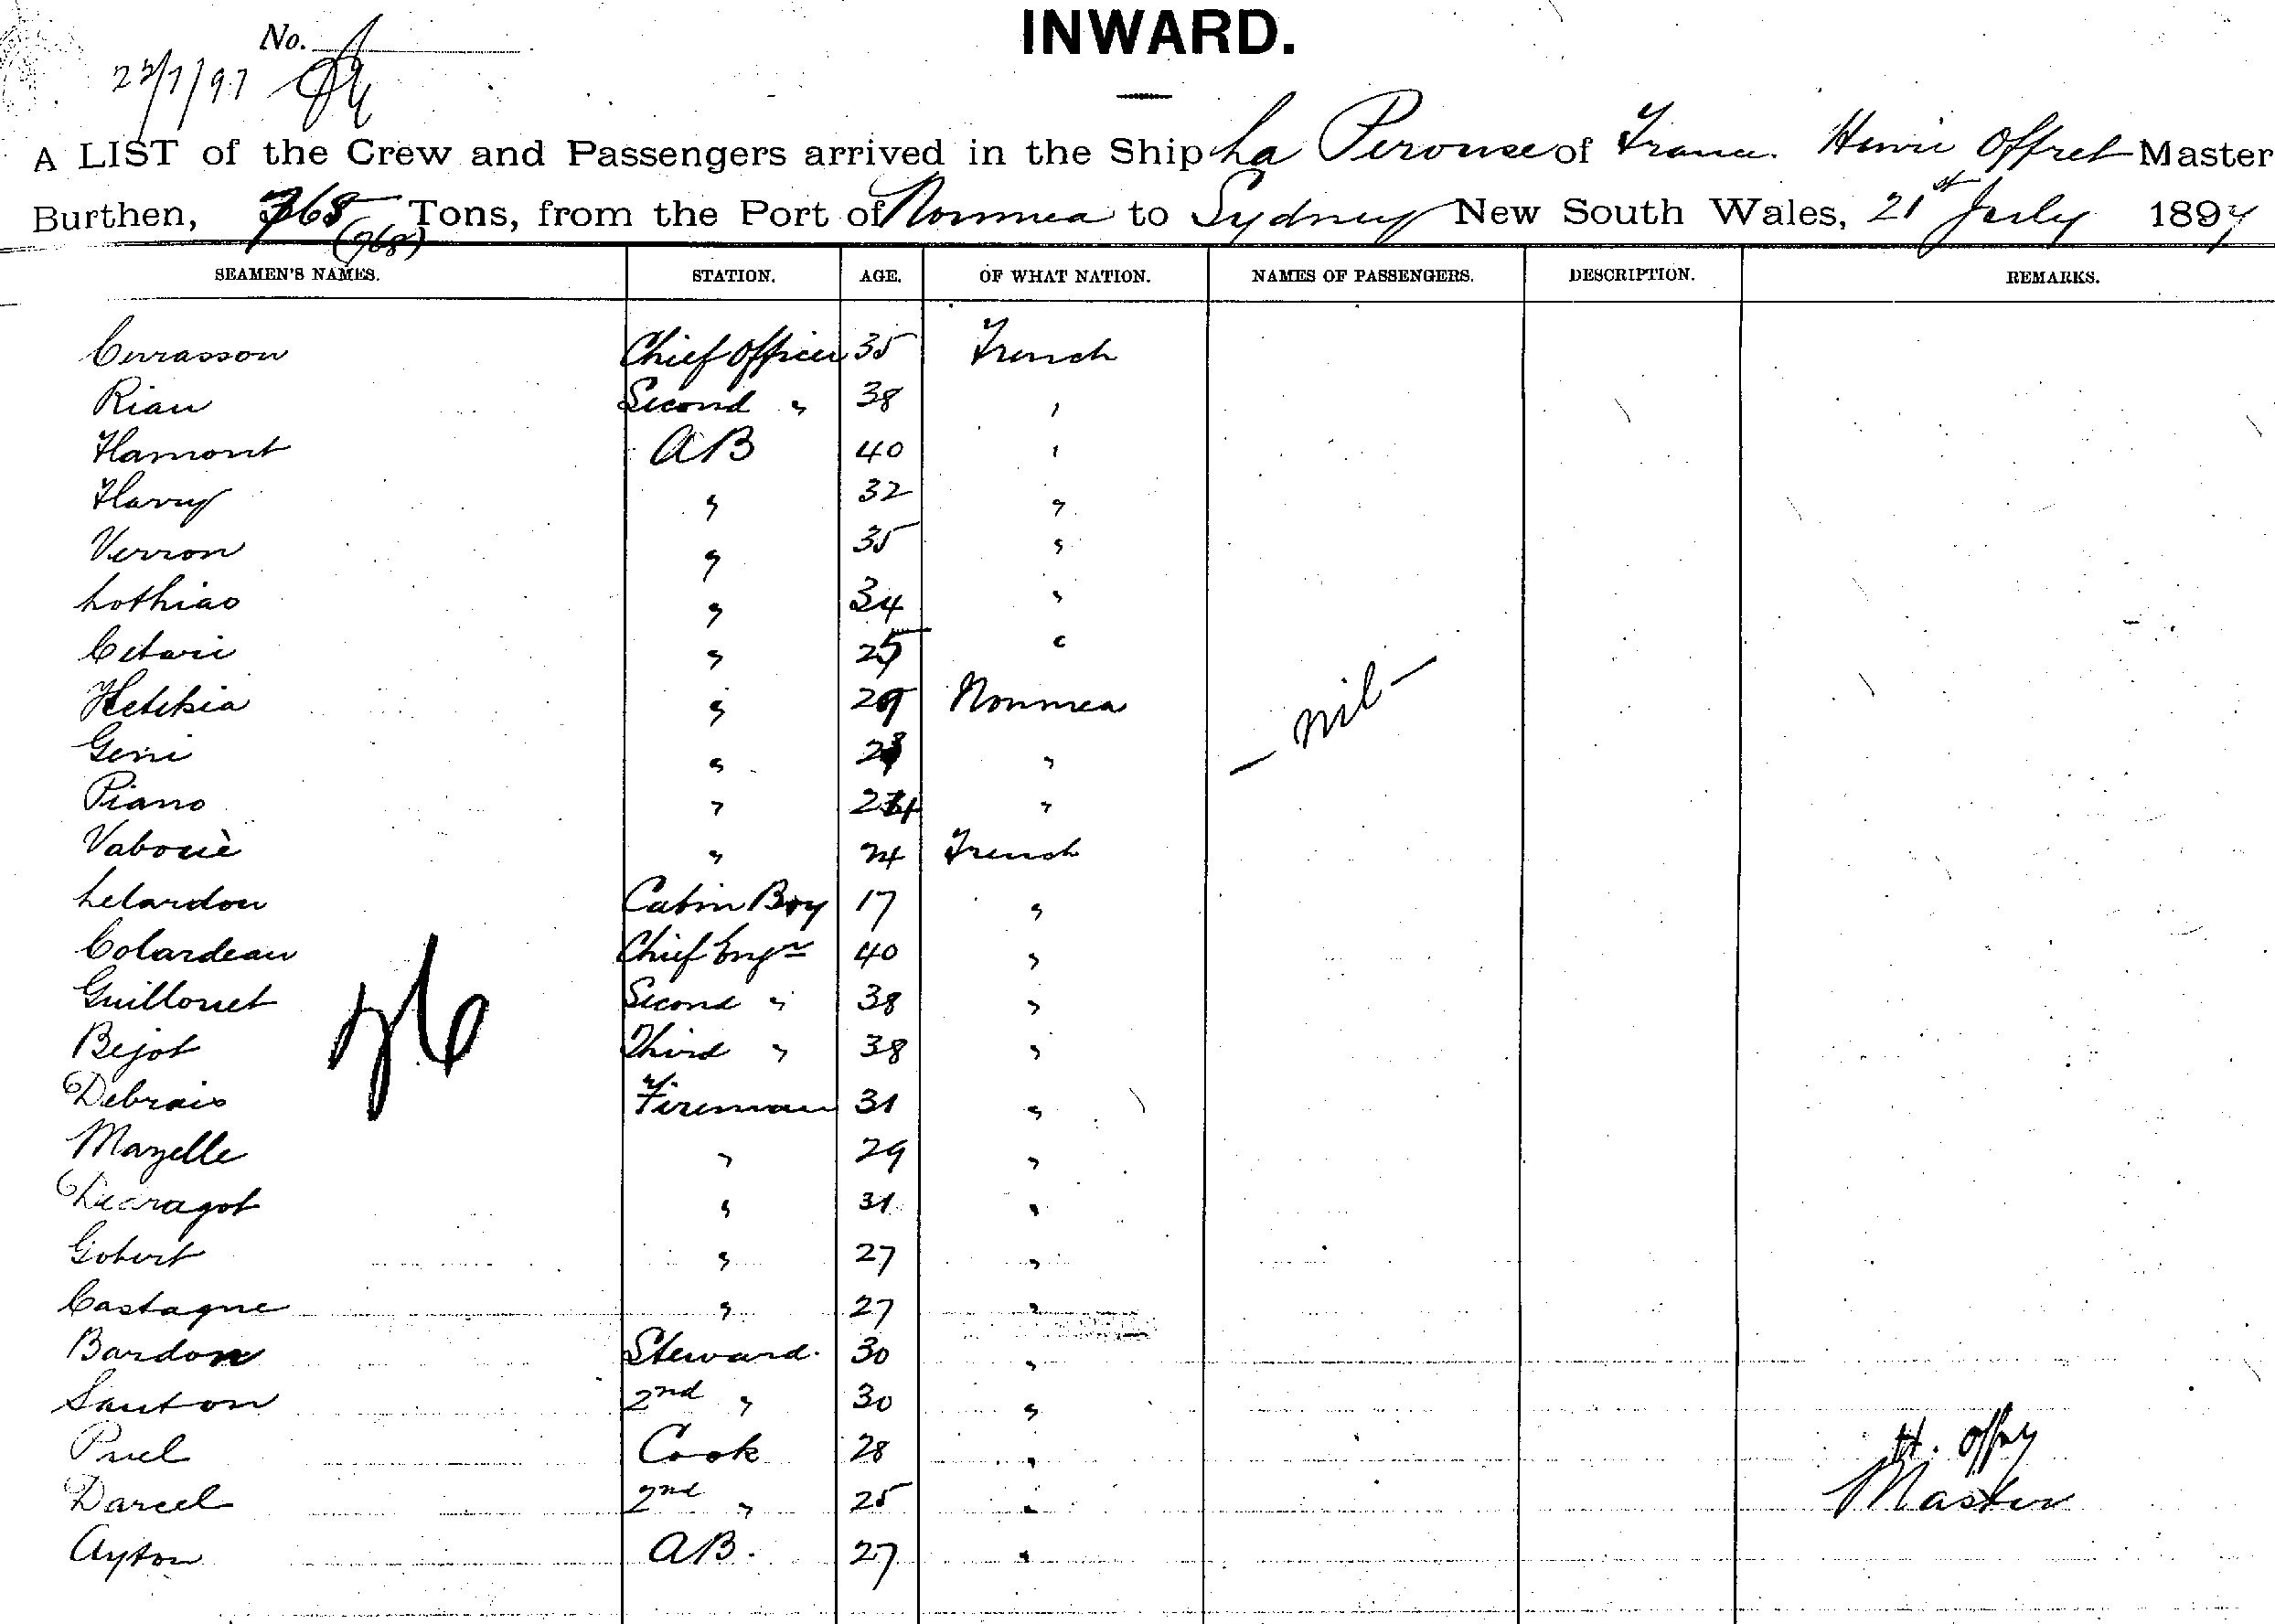 INWARD.
No.
22/7/97
A LIST of the Crew and Passengers arrived in the Ship La Perouse of France. Henri Offret Master
Burthen, 768 Tons, from the Port of Noumea to Sydney New South Wales, 21st July 1897
(768)
SEAMEN'S NAMES. STATION. AGE. OF WHAT NATION. NAMES OF PASSENGERS. DESCRIPTION. REMARKS.
Cerrasson Chief Officer 35 French
Riau Second " 38 "
Hamont AB 40 "
Harvy " 32 "
Verron " 35 "
Lothiao " 34 "
Cetari " 25 "
Hetekia " 29 Noumea
- nil -
Geni " 28 "
Piano " 24 "
Vabouè " 24 French
Lelardou Cabin Boy 17 "
Colardeau Chief Engr 40 "
Guillouet Second " 38 "
Bejot Third " 38 "
26
Debrais Fireman 31 "
Mazelle " 29 "
" 31 "
Gobert " 27 "
Castagne " 27 "
Bardon Steward. 30 "
Sauton 2nd " 30 "
Puel Cook 28 "
H. Offret
Darcel 2nd " 25 "
Master
Ayton AB. 27 "